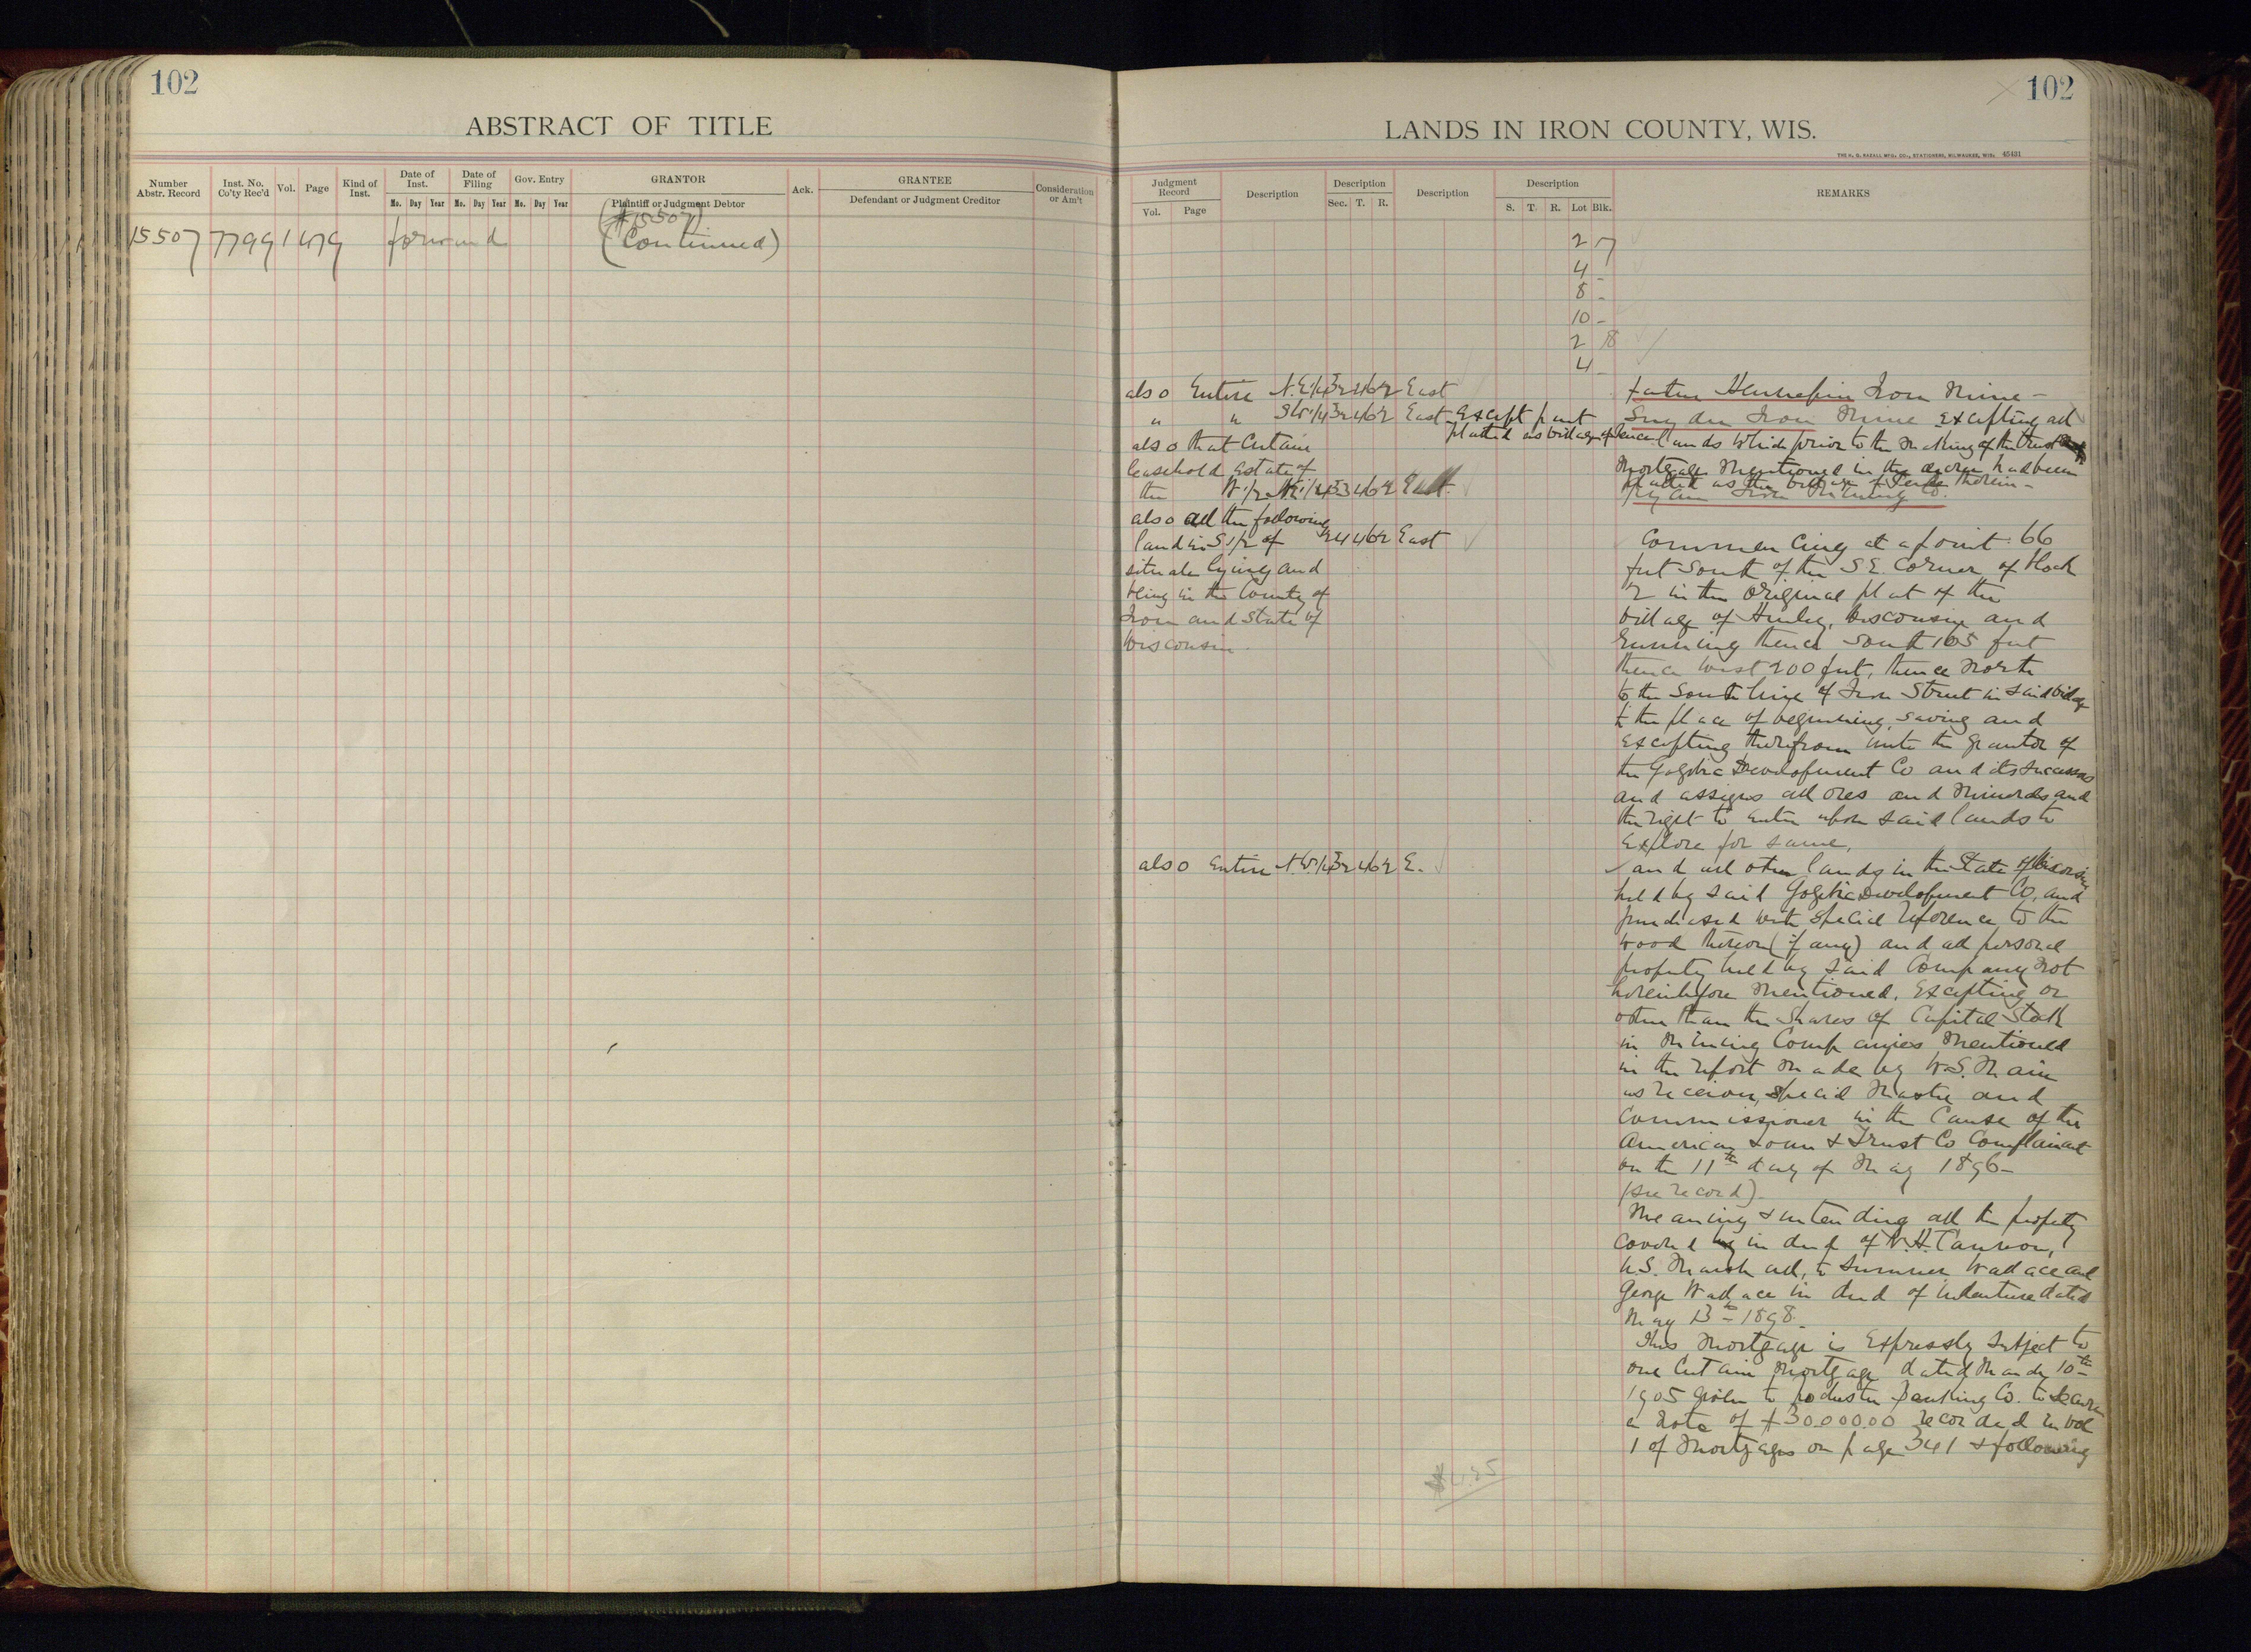 102
ABSTRACT OF TITLE
Number Abstr. Record
Inst. No. Co'ty Rec'd
Vol.
Page
Kind of Inst.
Date of Inst.
Mo. Day Year
Date of Filing
Mo. Day Year
Gov. Entry
Mo. Day Year
GRANTOR
Plaintiff or Judgment Debtor
Ack.
GRANTEE
Defendant or Judgment Creditor
Consideration or Am't
(#15507)
15507 7799 1 479 forward (Continued)
102
LANDS IN IRON COUNTY, WIS.
Judgment Record
Vol. Page
Description
Description
Sec. T. R.
Description
Description
S. T. R. Lot Blk.
REMARKS
2 17
4 -
8 -
10 -
2 18
4 -
also Entire N.E.1/4 32 46 2 East
" " S.W.1/4 32 46 2 East Except part
platted as village of Pence
also that Certain
leasehold Estate of
the W.1/2 N.E.1/4 33 46 2 East.
also all the following
land in S 1/2 of 24 46 2 East
situate lying and
being in the County of
Iron and State of
Wisconsin.
also Entire N.W.1/4 32 46 2 E.
Hennepin Iron Mine -
Snyder Iron Mine Excepting all
lands which prior to the making of the trust
Mortgage Mentioned in the decree had been
platted as the village of Pence therein -
Ryan Iron Mining Co.
Commencing at a point 66
feet South of the S.E. Corner of Block
2 in the Original plat of the
village of Hurley, Wisconsin and
Running thence South 165 feet
thence West 200 feet, thence North
to the South line of Iron Street in said village
to the place of beginning, saving and
Excepting therefrom unto the Grantor of
the Gogebic Development Co and its successors
and assigns all ores and Minerals and
the right to Enter upon said lands to
Explore for same.
and all other lands in the State of Wisconsin
held by said Gogebic Development Co, and
purchased with special reference to the
wood thereon (if any) and all personal
property held by said Company not
hereinbefore Mentioned, Excepting or
other than the shares of Capital Stock
in Mining Companies Mentioned
in the report Made by W.S. Main
as receiver, special Master and
Commissioner in the Cause of the
American Loan & Trust Co Complainant
on the 11th day of May 1896 -
(see record).
Meaning & intending all the property
covered in deed of
U.S. Marshall, to Sumner Wallace and
George Wallace in deed of indenture dated
May 13th 1898.
This Mortgage is Expressly Subject to
one Certain Mortgage dated March 10th
1905 given to Banking Co. to secure
a note of $30000.00 recorded in Vol
1 of Mortgages on page 341 & following